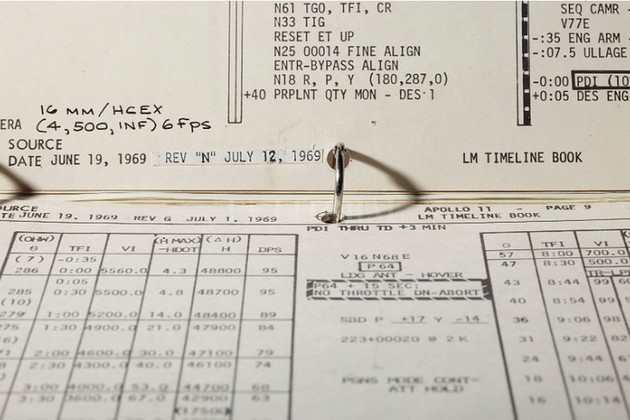 N61 TGO, TFI, CR
N33 TIG
RESET ET UP
N25 00014 FINE ALIGN
ENTR-BYPASS ALIGN
N18 R, P, Y (180,287,0)
+40 PRPLNT QTY MON - DES·1
SEQ CAMR -
V77E
-:35 ENG ARM -
-:07.5 ULLAGE
-0:00 PDI (10
+0:05 DES ENG
16 MM/HCEX
ERA (4,500,INF) 6 fps
SOURCE
DATE JUNE 19, 1969 REV "N" JULY 12, 1969
LM TIMELINE BOOK
OURCE
TE JUNE 19, 1969 REV G JULY 1, 1969
APOLLO 11 - PAGE 9
LM TIMELINE BOOK
PDI THRU TD +3 MIN
(OHW) (H MAX) (Δ H)
θ TFI VI -HDOT H DPS
(7) -0:35
286 0:00 5560.0 4.3 48800 95
0:05
285 0:30 5500.0 4.8 48700 95
(10)
279 1:00 5200.0 14.0 48400 89
275 1:30 4900.0 21.0 47900 84
2:00 4600.0 30.0 47100 79
2:30 4300.0 40.0 46100 73
3:00 4000.0 53.0 44700 68
3:30 3600.0 67.0 42900 63
(17500)
V16 N68 E
P 64
LDG ANT - HOVER
P64 + 15 SEC:
NO THROTTLE DN-ABORT
SBD P +17 Y -14
223+00020 @ 2 K
PGNS MODE CONT-
ATT HOLD
θ TFI VI
57 8:00 700.0
47 8:30 500.0
43 8:44 99
40 8:54 99
36 9:06 98
31 9:22
24 9:44
18 10:06
16 10:14